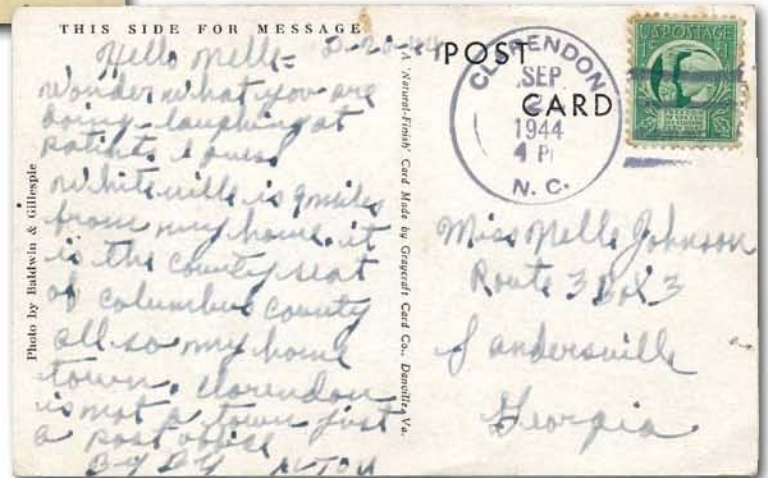 THIS SIDE FOR MESSAGE
Hello Nelle-
Wonder what you are
doing - laughing at
patints I guess
Whiteville is 9 miles
from my home. it
is the county seat
of columbus county
all so my home
town. Clarendon
is not a town just
a post office
BY BY ALTON
Photo by Baldwin & Gillespie
A 'Natural-Finish' Card Made by Graycraft Card Co., Danville, Va.
POST
CARD
CLARENDON
SEP
1944
4 P
N. C.
U.S. POSTAGE
Miss Nelle Johnson
Route 3 Box 3
Sandersville
Georgia